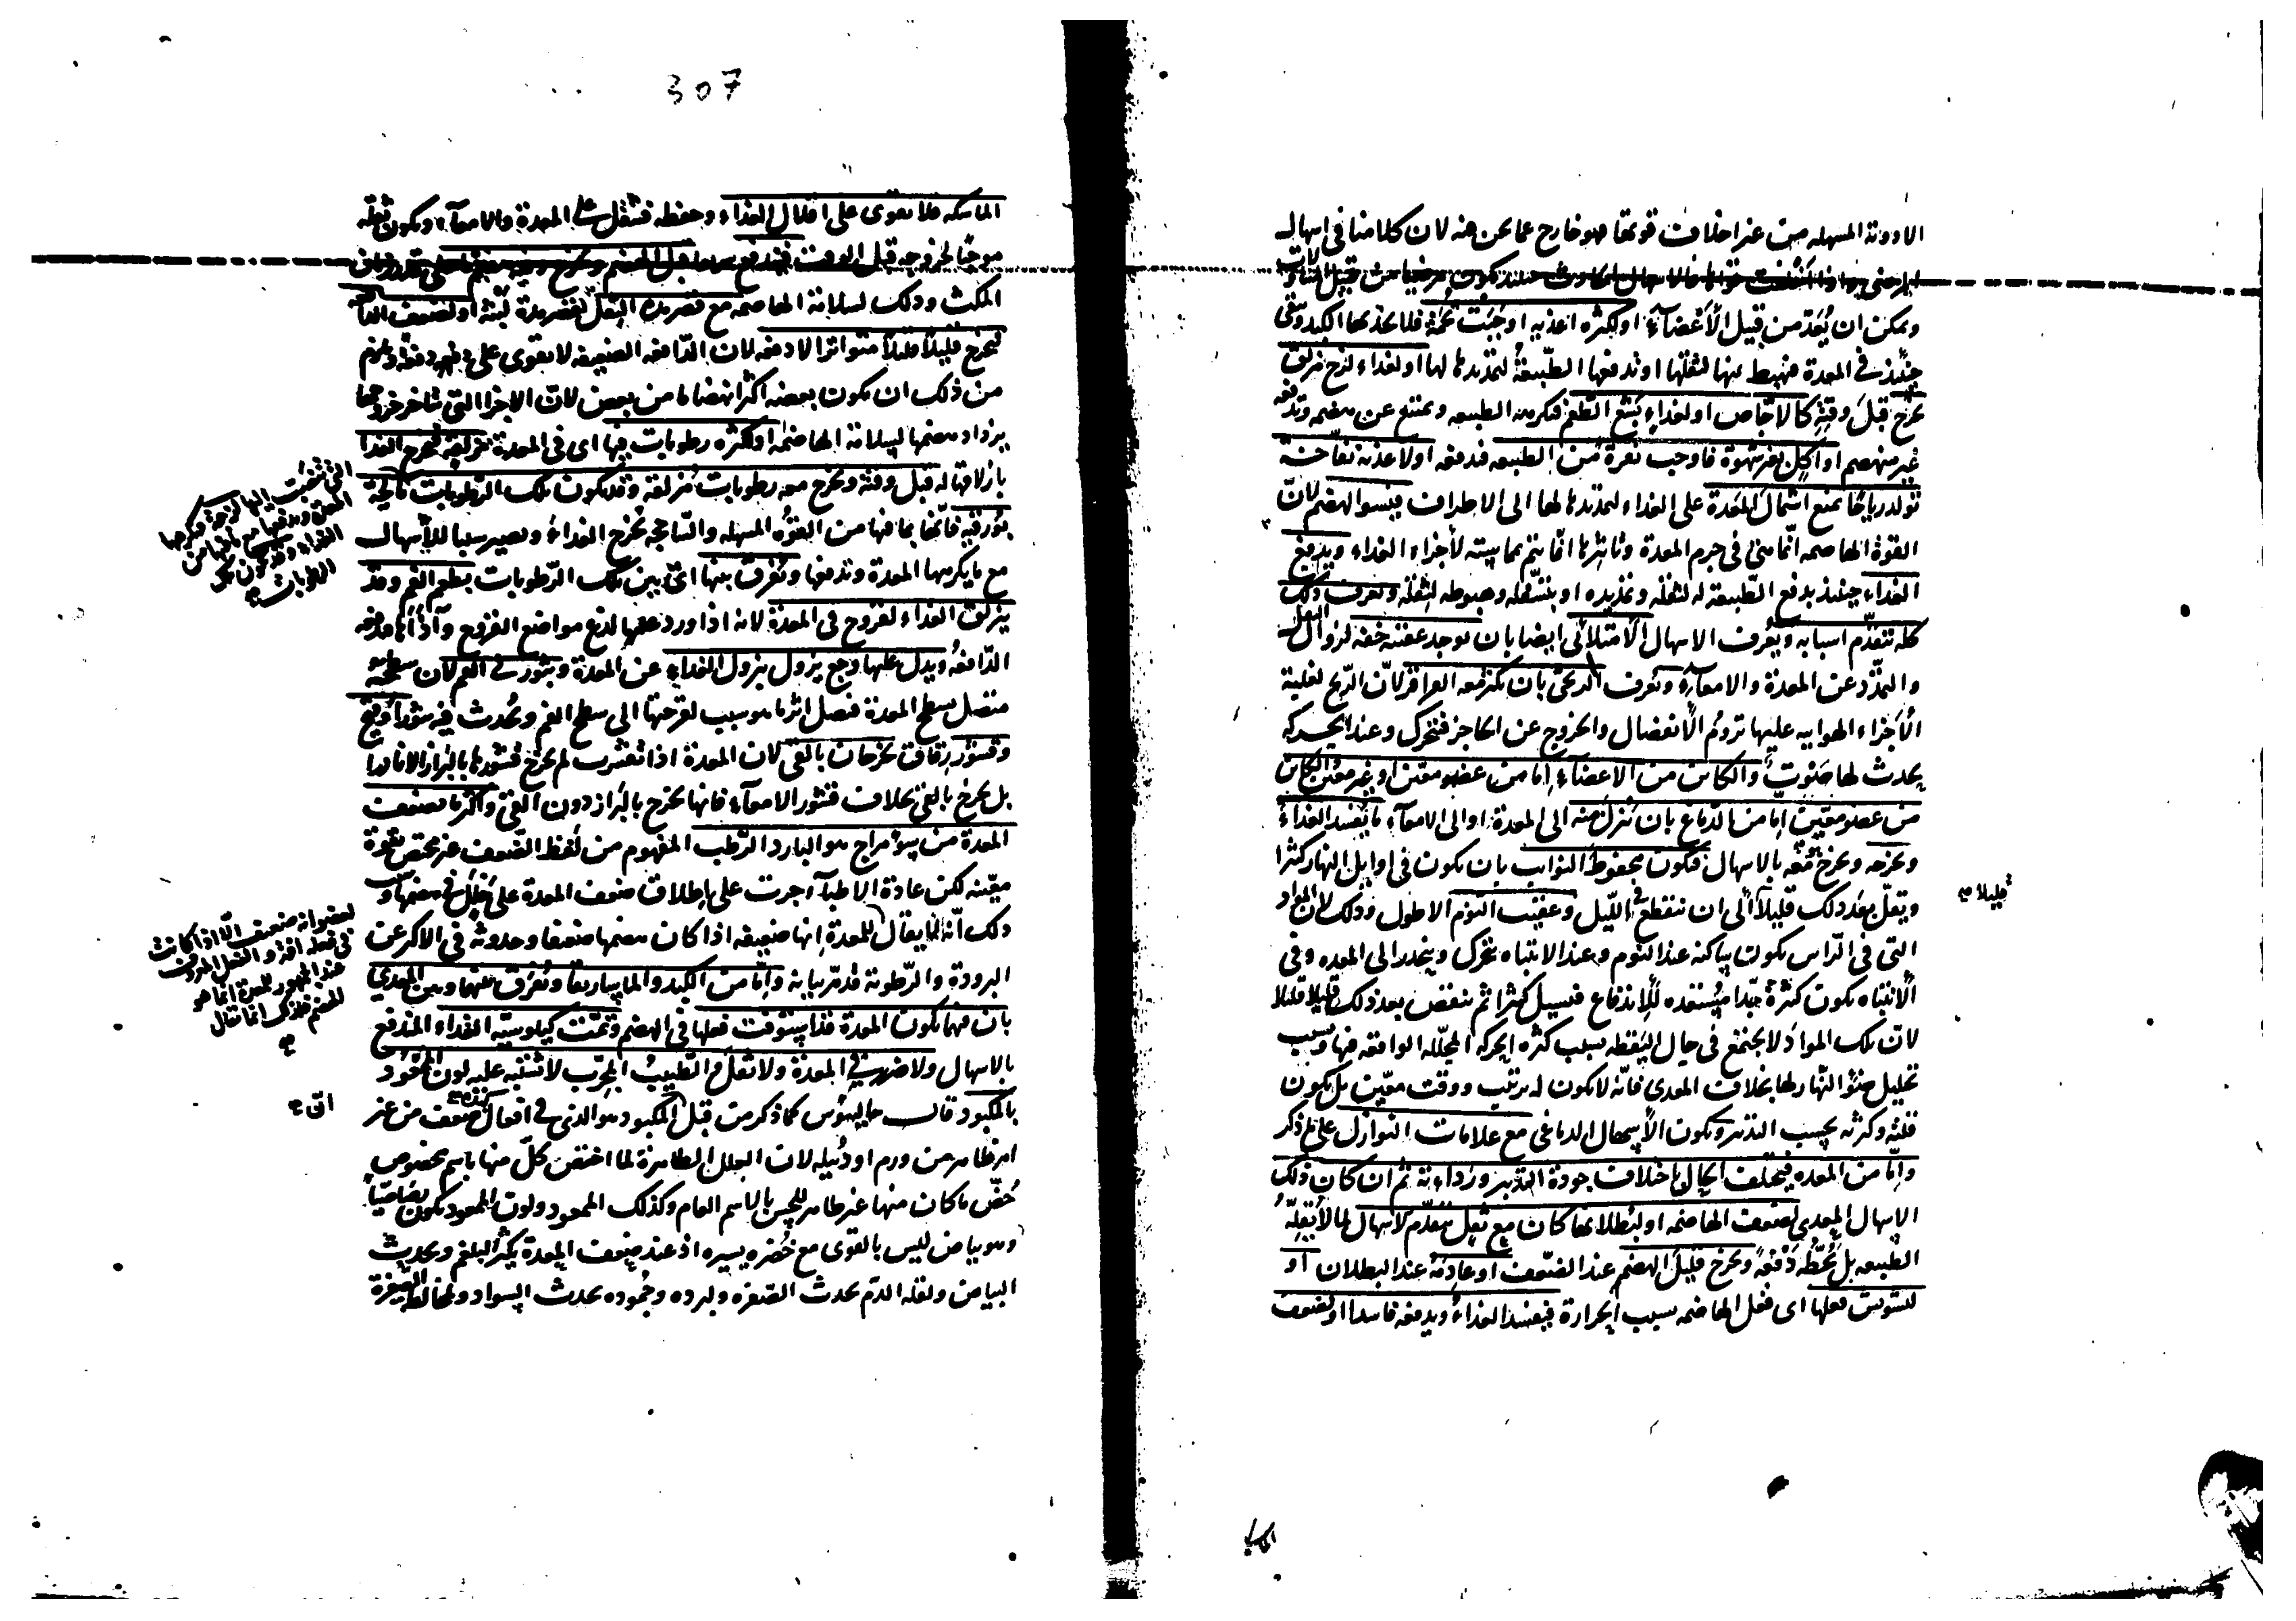 الادوية المسهله من غير اختلاف قوتها هو خارج عما نحن فيه لان كلامنا في اسهال
المرضى
ويمكن ان يُعَدّ من قبيل الأغضاء او لكثرة اغذيه اوجَبَت تخمة فلا يجذبها الكبد وتبقى
حينئذ في المعدة فتهبط منها لثقلها او تدفعها الطبيعةُ لتمديدها لها او لغذاء لزج مزلق
يخرج قبل وقته كالاجّاص او لغذاءٍ بَشِع الطعم فتكرهه الطبيعه وتمتنع عن هضمه وتدفعه
غير منهضم او أكِل بغير شهوة فاوجب نفرة من الطبيعه فتدفعه او لاغذية نفّاخة
تولد رياحًا تمنع اشتمال المعدة على الغذاء لتمديدها لها الى الاطراف فيسوء الهضم لانّ
القوة الهاضمه انّما هى في جرم المعدة وتاثيرها انّما يتم بمماسته لأجزاء الغذاء ويندفع
الغذاء حينئذ بدفع الطبيعة له لثقله وتمديده او بتسفّله وهبوطه لثقله ويعرف ذلك
كله بتقدّم اسبابه ويُعرف الاسهال الامتلائى ايضا بان يوجد عقيبه خفه لزوال الثقل
والتمدّد عن المعدة والامعآء ويعرف الريحىّ بان يكثر معه القراقر لانّ الريح لغلبة
الأجزاء الهوائيه عليها تروم الأنفصال والخروج عن الحاجز فتتحرك وعند الحركه
يحدث لها صَوت والكائن من الاعضآء إمّا من عضو معيّن او غير معيّن الكائن
من عضو معيّن إمّا من الدماغ بان تنزل منه الى المعدة او الى الامعآء ما يُفسد الغذاء
ويخرجه ويخرج معه بالاسهال فيكون محفوظ النوائب بان يكون في اوايل النهار كثيرا
ويقلّ بعد ذلك قليلاً الى ان ينقطع في الليل وعقيب النوم الاطول وذلك لان المواد
قليلا صح
التي في الراس يكون ساكنه عند النوم وعند الانتباه يتحرك وينحدر الى المعده وفي
الأنتباه يكون كثرةً جدّا مُستعده للاندفاع فتسيل كثيرا ثم ينقص بعد ذلك قليلا قليلا
لانّ تلك الموادّ لا يجتمع في حال اليقظه بسبب كثره الحركه المحلّله الواقعه فيها وبسبب
تحليل ضوء النهار لها بخلاف المعدى فانّه لا يكون له ترتيب ووقت معيّن بل يكون
قلته وكثرته بحسب التدبير ويكون الأسهال الدماغى مع علامات النوازل على ما ذكر
وإمّا من المعده فيختلف الحال باختلاف جودة التدبير ورداءته ثم ان كان ذلك
الاسهال المعدى لضعف الهاضمه او لبُطلانها كان مع ثقل متقدّم لاسهال لما لا تُقِلّهُ
الطبيعه بل تحُطّه دَفْعةً ويخرج قليل الهضم عند الضعف او عادِمَهُ عند البطلان او
لتشوش فعلها اى فعل الهاضمه بسبب الحرارة فيفسد الغذاءُ ويدفعه فاسدا او لضعف
307
الماسكه فلا يقوى على اقلال الغذاء وحفظه فتثقل على المعدة والامعآء ويكون ثقله
موجبًا لخروجه قبل الوقت فيندفع
المكث وذلك لسلامة الهاضمه مع قصر مدة الثقل لقصر مدة لبثه او لضعف الدافعه
فيخرج قليلاً قليلاً متواترا لا دفعه لان الدّافعه الضعيفه لا يقوى على دفعه دفعةً ويلزم
من ذلك ان يكون بعضه اكثر انهضاما من بعض لانّ الاجزا التي تتاخر خروجها
يزداد هضمها لسلامة الهاضمه او لكثره رطوبات فيها اى في المعدة مزلقه فيخرج الغذا
بازلاقها له قبل وقته ويخرج معه رطوبات مُزلقة وقد يكون تلك الرطوبات مالحة
بُورقيه فانّها بما فيها من القوّه المسهله والسّاحجه يُخرج الغذاءَ ويصير سببا للأسهال
مع ما يكرهها المعدة وتدفعها ويُفرق بينها اىّ بين تلك الرّطوبات بطعم الفم وقد
ينزلق الغذاء لقروح في المعدة لانه اذا ورد عليها لدغ مواضع القروح وآذاها فدفعه
الدّافعهُ ويدل عليها وجع يزول بنزول الغذاءِ عن المعدة وبثور في الفم لان سطحه
متصل بسطح المعدة فيصل اثر ما هو سبب لقرحتها الى سطح الفم ويُحدث فيه بثورا وقيح
وقشور رِقاق يخرجان بالقىء لان المعدة اذا تقشرت لم يخرج قشورها بالبراز الا نادرا
بل يخرج بالقىء بخلاف قشور الامعآء فانها تخرج بالبَراز دون القىء واكثر ما تضعف
المعدة من سوء مزاج هو البارد الرّطب المفهوم من لفظ الضعف غير مختص بقوة
معيّنه لكن عادة الاطبآء جرت على إطلاق ضعف المعدة على خَللٍ في هضمها وسبب
ذلك أنّه انما يقال للمعدة إنها ضعيفه اذا كان هضمها ضعيفا وحدوثه في الاكثر عن
البرودة والرطوبة قد مرّ بيانه وإمّا من الكبد والماساريقا ويُفرَق بينهما وبين المعدي
بان فيهما يكون المعدة قد استوفت فعلها في الهضم وتمّت كيلوسيّه الغذاء المندفع
بالاسهال ولا ضرر في المعدة ولا ثقل والطبيبُ المجرّب لا تشتبه عليه لون الممعود
بالمكبود قال جالينوس كما ذكر من قبل المكبود هو الذى في افعال كبده ضعف من غير
امر ظاهر من ورم او دُبيله لان العلل الظاهرة لما اختصّ كلّ منها باسم مخصوص
خُصّ ما كان منها غير ظاهر للحس بالاسم العام وكذلك الممعود ولون الممعود يكون رصاصيًّا
وهو بياض ليس بالقوى مع خُضره يسيره اذ عند ضعف المعدة يكثر البلغم ويحدث
البياض ولقله الدّم يحدث الصّفره ولبرده وجُموده يحدث السواد وبمخالطة الصفرة
الغذاء وقد يكون تلك
الرطوبات
لعضو انه ضعيف الّا اذا كانت
في فعله افة والفعل المعروف
عند الجمهور للمعدة انما هو
الهضم فلذلك انما يقال
صح